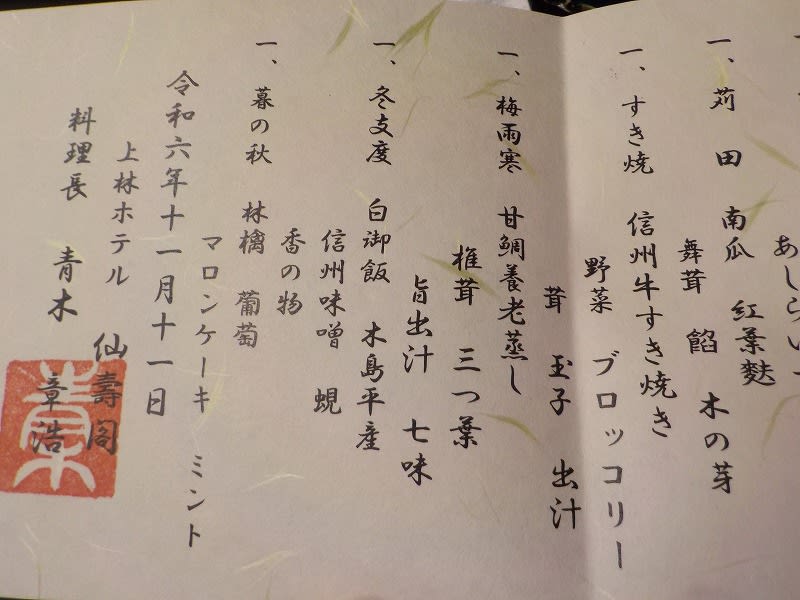 あしらい
一、苅田 南瓜 紅葉麩
舞茸 餡 木の芽
一、すき焼 信州牛すき焼き
野菜 ブロッコリー
茸 玉子 出汁
一、梅雨寒 甘鯛養老蒸し
椎茸 三つ葉
旨出汁 七味
一、冬支度 白御飯 木島平産
信州味噌 蜆
香の物
一、暮の秋 林檎 葡萄
マロンケーキ ミント
令和六年十一月十一日
上林ホテル 仙壽閣
料理長 青木 章浩